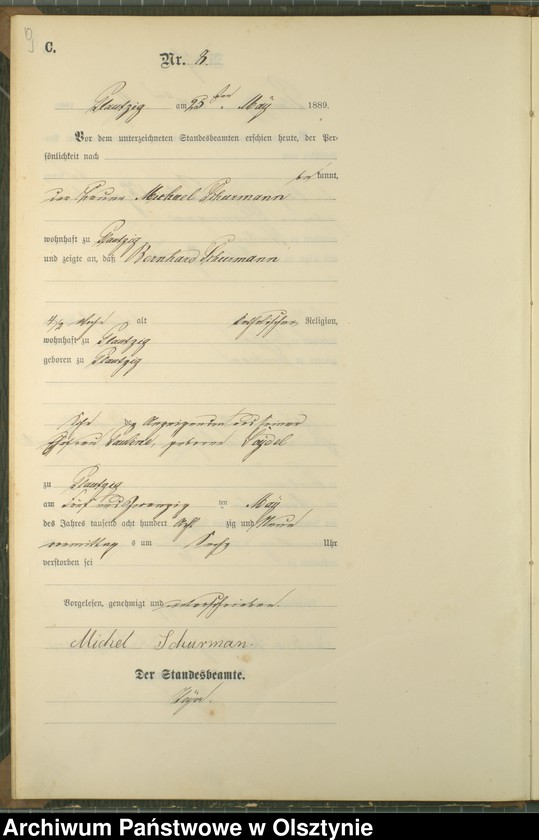 9
C.
Nr. 8.
Plautzig am 25ten May 1889.
Vor dem unterzeichneten Standesbeamten erschien heute, der Per-
sönlichkeit nach
be kannt,
der Michael Schurmann
wohnhaft zu Plautzig
und zeigte an, daß Bernhard Schurmann
4 1/2 Woche alt katholischer Religion,
wohnhaft zu Plautzig
geboren zu Plautzig
Sohn des Anzeigenden und seiner
Ehefrau geborene
zu Plautzig
am fünf und zwanzig ten May
des Jahres tausend acht hundert acht zig und Neun
vormittag s um Sechs Uhr
verstorben sei
Vorgelesen, genehmigt und unterschrieben.
Michel Schurman.
Der Standesbeamte.
Archiwum Państwowe w Olsztynie